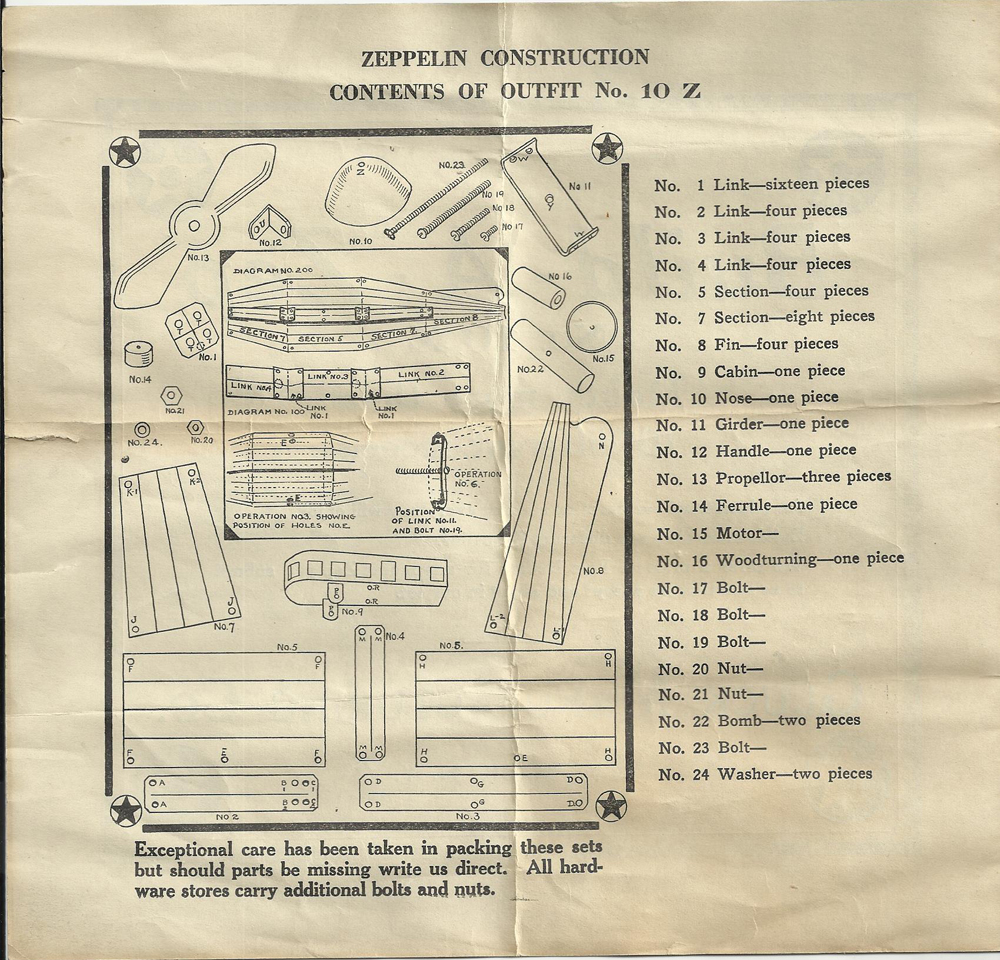 ZEPPELIN CONSTRUCTION
CONTENTS OF OUTFIT No. 10 Z
No. 1 Link—sixteen pieces
No. 2 Link—four pieces
No. 3 Link—four pieces
No. 4 Link—four pieces
No. 5 Section—four pieces
No. 7 Section—eight pieces
No. 8 Fin—four pieces
No. 9 Cabin—one piece
No. 10 Nose—one piece
No. 11 Girder—one piece
No. 12 Handle—one piece
No. 13 Propellor—three pieces
No. 14 Ferrule—one piece
No. 15 Motor—
No. 16 Woodturning—one piece
No. 17 Bolt—
No. 18 Bolt—
No. 19 Bolt—
No. 20 Nut—
No. 21 Nut—
No. 22 Bomb—two pieces
No. 23 Bolt—
No. 24 Washer—two pieces
No.13
No.12
NO
No.10
NO.23
No 19
No 18
No 17
W
No 11
W
DIAGRAM NO. 200
SECTION 7
SECTION 5
SECTION 7
SECTION 8
LINK No4
LINK No.3
LINK No.2
DIAGRAM No. 100
LINK
No.1
LINK
No.1
E
E
OPERATION No3. SHOWING
POSITION OF HOLES NO.E.
OPERATION
No.6.
POSITION
OF LINK No.11.
AND BOLT No.19.
No 16
No.15
No.22
No.1
No.14
No.21
No.24.
No.20
K-1
K-2
J
J
No.7
N
No.8
L-2
O.R
O.R
P
P
No.9
No.5
F
F
F
E
F
M
M
No.4
M
M
No.5.
H
H
H
E
H
A
A
No.2
D
G
D
D
G
D
No.3
Exceptional care has been taken in packing these sets
but should parts be missing write us direct. All hard-
ware stores carry additional bolts and nuts.